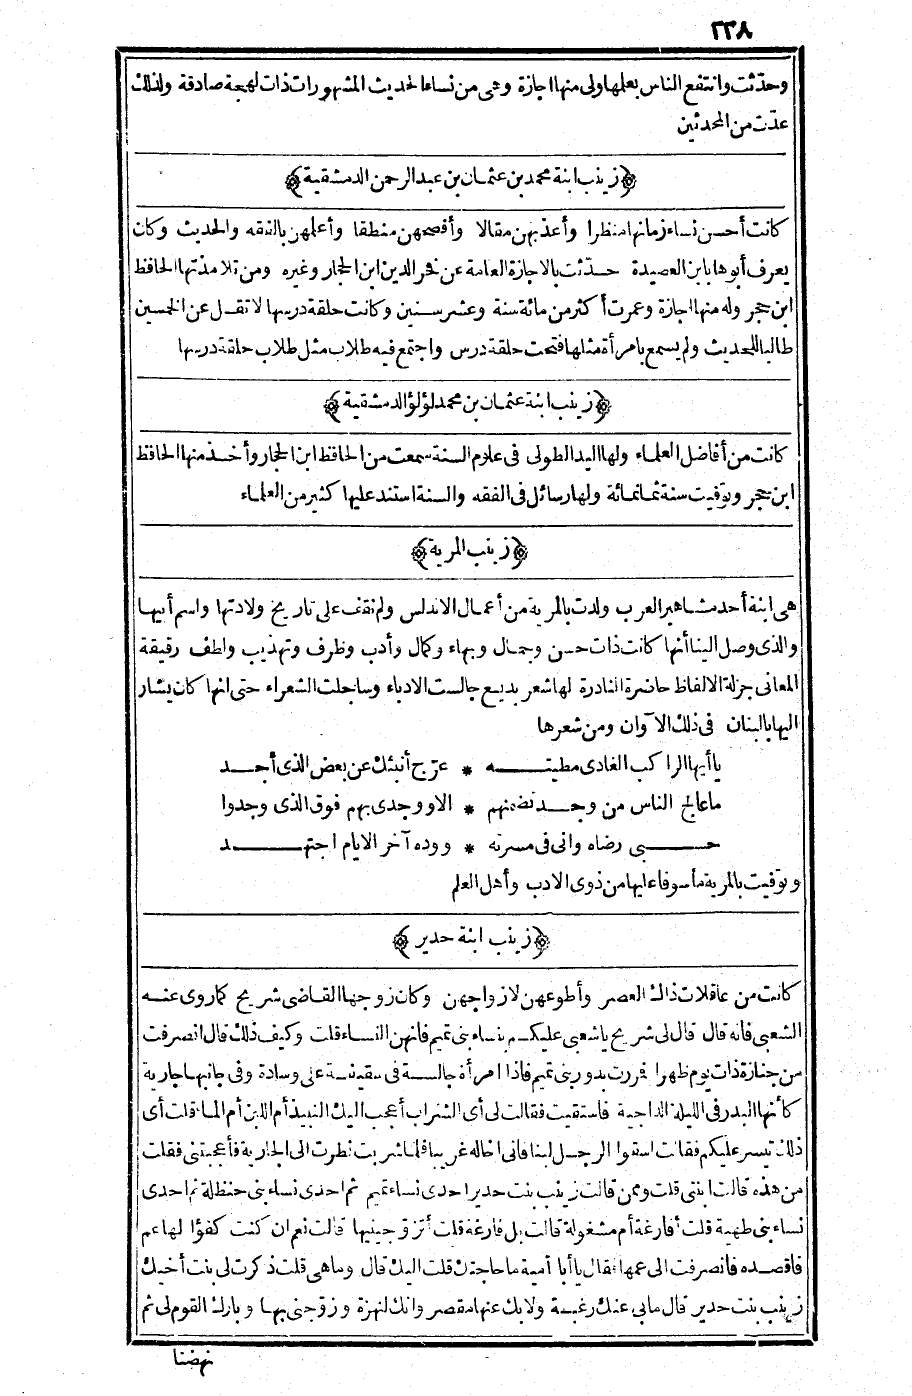 ٢٣٨
وحدّثت وانتفع الناس بعلمها ولى منها اجازة وهى من نساء الحديث المشهورات ذات لهجة صادقة ولذلك
عدّت من المحدثين
﴿زينب ابنة محمد بن عثمان بن عبد الرحمن الدمشقية﴾
كانت أحسن نساء زمانها منظرا وأعذبهن مقالا وأفصحهن منطقا وأعلمهن بالفقه والحديث وكان
يعرف أبوها بابن العصيدة حدّثت بالاجازة العامة عن فخر الدين ابن الحجار وغيره ومن تلامذتها الحافظ
ابن حجر وله منها اجازة وعمرت أكثر من مائة سنة وعشر سنين وكانت حلقة درسها لا تقل عن الخمسين
طالبا للحديث ولم يسمع بامرأة مثلها فتحت حلقة درس واجتمع فيه طلاب مثل طلاب حلقة درسها
﴿زينب ابنة عثمان بن محمد لؤلؤ الدمشقية﴾
كانت من أفاضل العلماء ولها اليد الطولى فى علوم السنة سمعت من الحافظ ابن الحجار وأخذ منها الحافظ
ابن حجر وتوفيت سنة ثمانمائة ولها رسائل فى الفقه والسنة استند عليها كثير من العلماء
﴿زينب المرية﴾
هى ابنة أحد مشاهير العرب ولدت بالمرية من أعمال الاندلس ولم نقف على تاريخ ولادتها واسم أبيها
والذى وصل الينا أنها كانت ذات حسن وجمال وبهاء وكمال وأدب وظرف وتهذيب ولطف رقيقة
المعانى جزلة الالفاظ حاضرة النادرة لها شعر بديع جالست الادباء وساجلت الشعراء حتى انها كان يشار
اليها بالبنان فى ذلك الآوان ومن شعرها
ياأيها الراكب الغادى مطيته * عرّج أنبئك عن بعض الذى أجد
ما عالج الناس من وجد تضمنهم * الا ووجدى بهم فوق الذى وجدوا
حسبى رضاه وانى فى مسرته * ووده آخر الايام اجتهد
وتوفيت بالمرية مأسوفا عليها من ذوى الادب وأهل العلم
﴿زينب ابنة حدير﴾
كانت من عاقلات ذاك العصر وأطوعهن لازواجهن وكان زوجها القاضى شريح كما روى عنه
الشعبى فانه قال قال لى شريح يا شعبى عليكم بنساء بنى تميم فانهن النساء قلت وكيف ذلك قال انصرفت
من جنازة ذات يوم ظهرا فمررت بدور بنى تميم فاذا امرأة جالسة فى سقيفة على وسادة وفى جانبها جارية
كأنها البدر فى الليلة الداجية فاستقيت فقالت لى أى الشراب أعجب اليك النبيذ أم اللبن أم الماء قلت أى
ذلك تيسر عليكم فقالت اسقوا الرجل لبنا فانى اخاله غريبا فلما شربت نظرت الى الجارية فأعجبتنى فقلت
من هذه قالت ابنتى قلت وممن قالت زينب بنت حدير احدى نساء تميم ثم احدى نساء بنى حنظلة ثم احدى
نساء بنى طهية قلت أفارغة أم مشغولة قالت بل فارغة قلت أتزوجينيها قالت نعم ان كنت كفؤا لها عم
فاقصده فانصرفت الى عمها فقال يا أبا أمية ما حاجتك قلت اليك قال وما هى قلت ذكرت لى بنت أخيك
زينب بنت حدير قال ما بى عنك رغبة ولا بك عنها مقصر وانك لنهزة وزوجنى بها وبارك القوم لى ثم
نهضنا